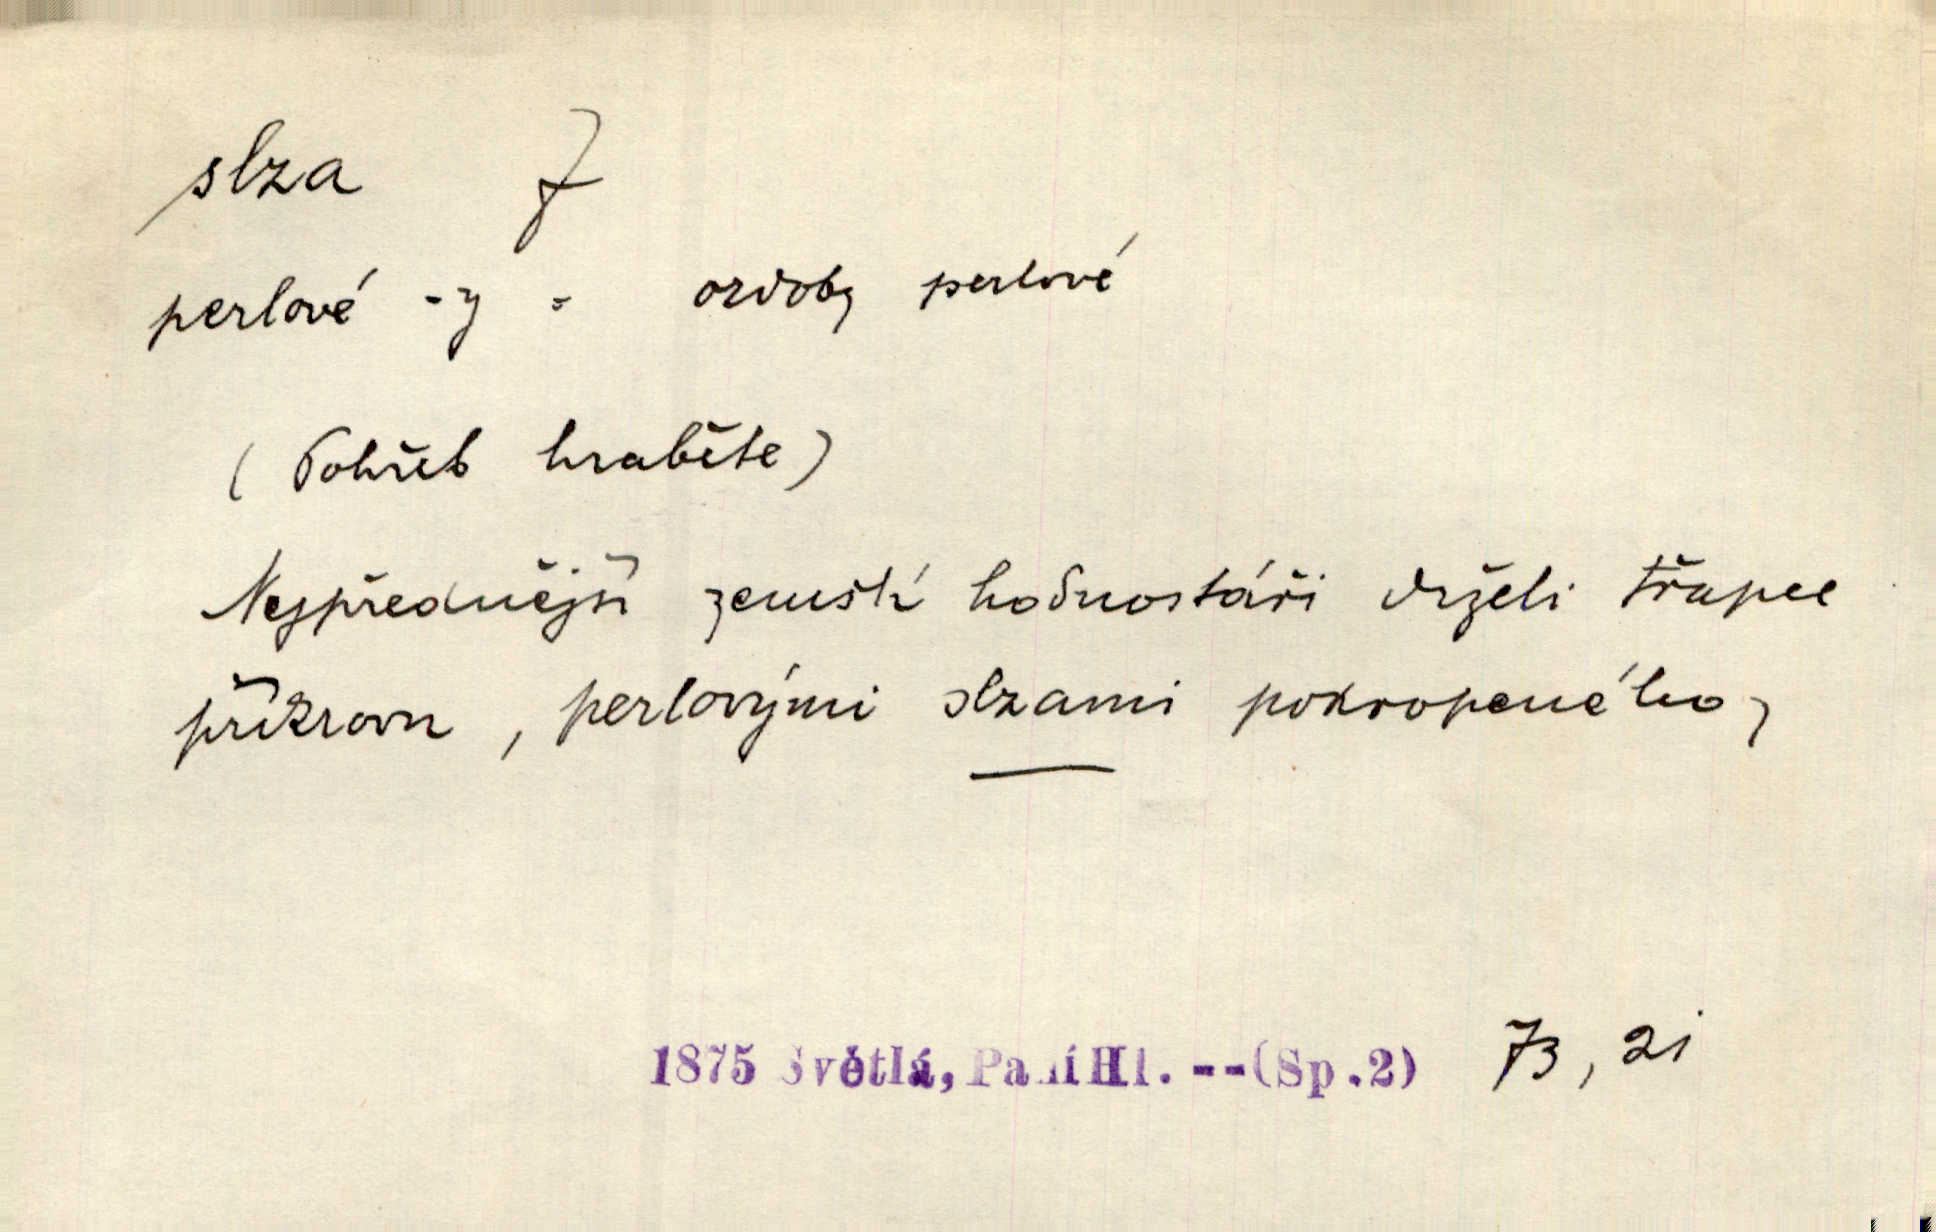 slza f
perlové -y = ozdoby perlové
(Pohřeb hraběte)
Nejpřednější zemští hodnostáři drželi třapce
příkrovu, perlovými slzami pokropeného,
1875 Světlá, Paní Hl. --(Sp.2) 73, 21